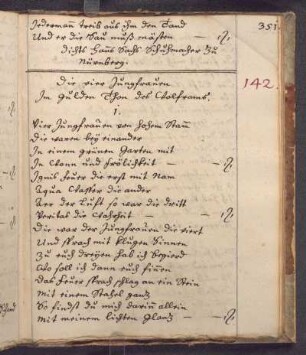 351.
Jedermañ treib aus ihm den Tand
Und er die Sau muß mästen
dichts Hanns Sachs Schuhmacher zu
Nürnberg.
142.
Die vier Jungfrauen
Im Gulden Thon des Wolframs.
1.
Vier Jungfrauen von hohem Stam̃
Die waren bey einander
In einem grünen Garten mit
In Wonn und Frölichkeit
Ignis Feuer die erst mit Nam
Aqua Wasser die ander
Aer der Luft so war die dritt
Veritas die Wahrheit
Die war der Jungfrauen die viert
Und sprach mit klugen Sinnen
Zu euch dreyen hab ich Begierd
Wo soll ich dann euch finen
Das Feuer sprach schlag an ein Stein
Mit einem Stahel gantz
So findst du mich darin allein
Mit meinem lichten Glantz